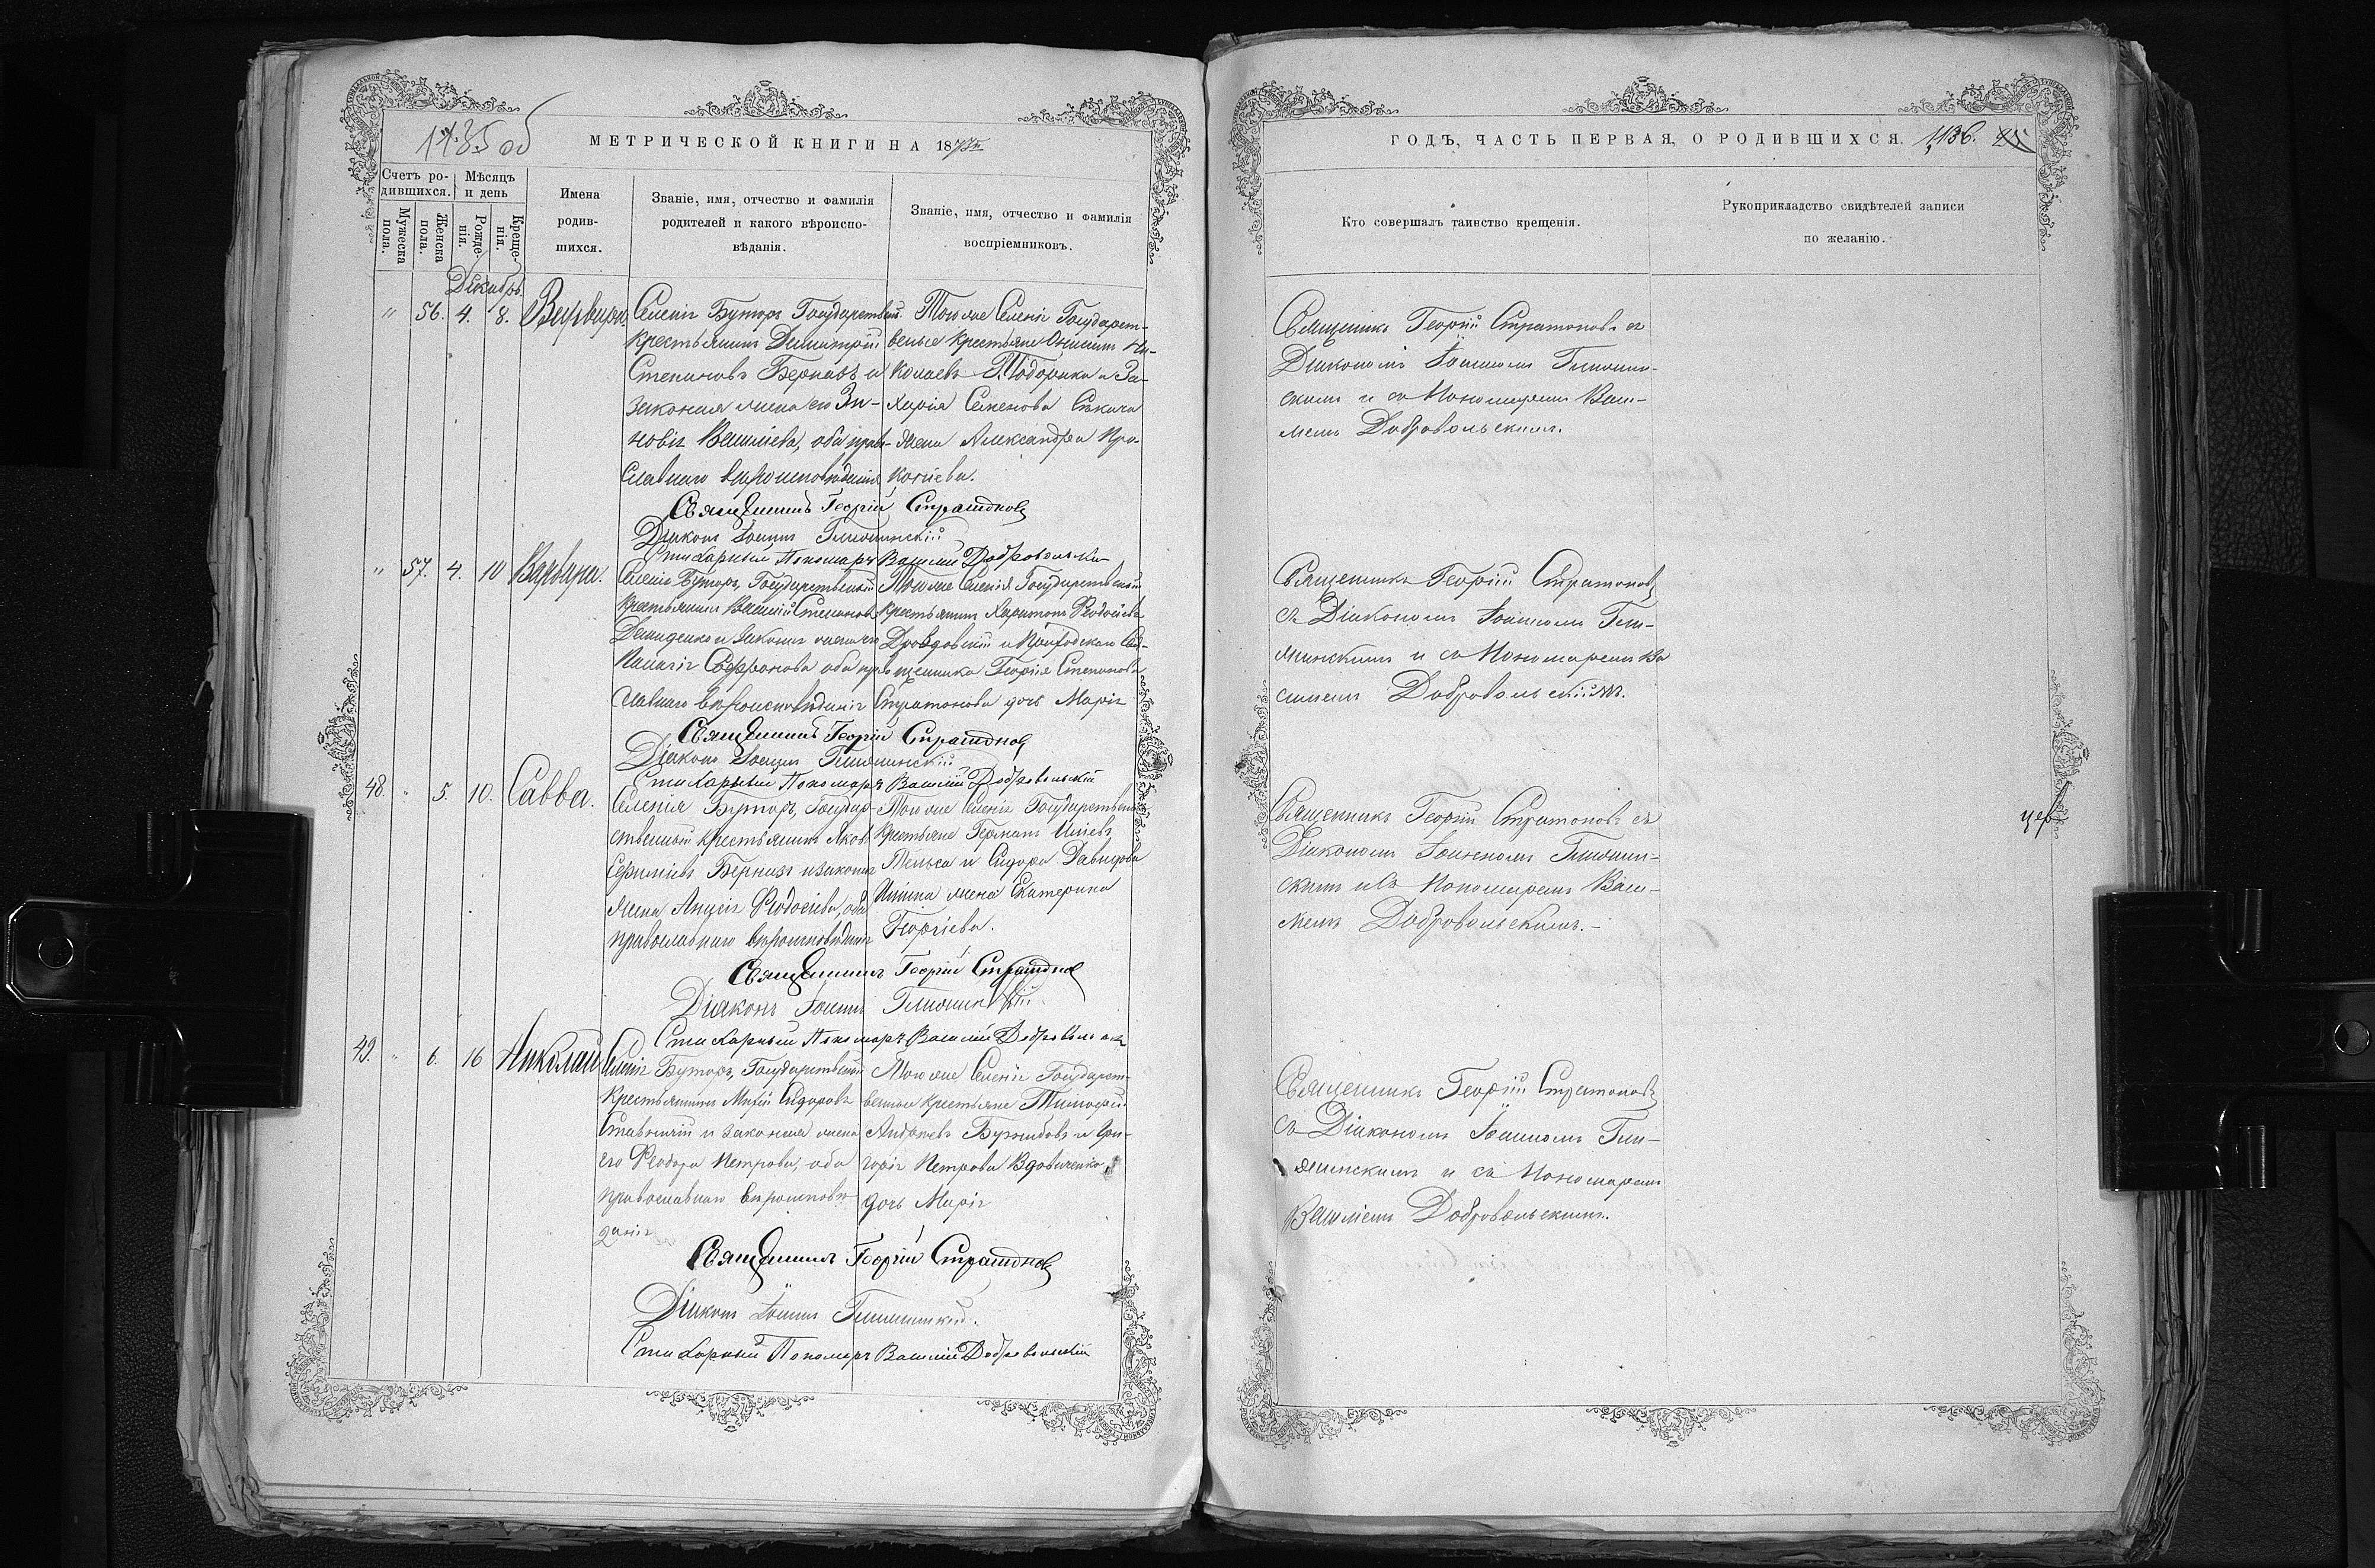 1135 об
МЕТРИЧЕСКОЙ КНИГИ НА 187
Счетъ ро-
дившихся.
Мѣсяцъ
и день
Мужеска
пола.
Женска
пола.
Рожде-
нія.
Креще-
нія.
Имена
родив-
шихся.
Званіе, имя, отчество и фамилія
родителей и какого вѣроиспо-
вѣданія.
Званіе, имя, отчество и фамилія
воспріемниковъ.
Декабрь
" 56. 4. 8. Варвара.
Селенія Буторъ Государствен.
крестьянинъ Димитрій
Степановъ Бернавъ и
законная жена его Зи-
новія Василіева, оба право-
славнаго вѣроисповѣданія
Того же Селенія Государст-
венные крестьяне Онисимъ Ни-
колаевъ Тодорика и За-
харія Семенова
жена Александра Про-
копіева.
Священникъ Георгій Стратоновъ
Діаконъ Іоаннъ Глижинскій
Стихарный Пономарь Василій Добровольскі
" 57. 4. 10 Варвара.
Селенія Буторъ, Государственный
крестьянинъ Василій Степановъ
Демиденко и законная жена его
Пелагія Софронова оба пра-
славнаго вѣроисповѣданія
Того же Селенія Государственный
крестьянинъ Харитонъ Ѳеодосіевъ
Дроздовскій и Приходскаго Свя-
щенника Георгія Степанова
Стратонова дочь Марія
Священникъ Георгій Стратоновъ
Діаконъ Іоаннъ Глижинскій
Стихарный Пономарь Василій Добровольскій
48. " 5. 10. Савва.
Селенія Буторъ, Государ-
ственный крестьянинъ Яковъ
Ефиміевъ Бернавъ и законная
жена Анна Ѳеодосіева, оба
православнаго вѣроисповѣданія
Того же Селенія Государственные
крестьяне Германъ Иліевъ
и Сидора Давидова
жена Екатерина
Георгіева.
Священникъ Георгій Стратоновъ
Діаконъ Іоаннъ Глижинскій
Стихарный Пономарь Василій Добровольскі
49. " 6. 16 Николай
Селенія Буторъ, Государственный
крестьянинъ Сидоровъ
и законная жена
его Ѳеодора Петрова, оба
православнаго вѣроисповѣ-
данія
Того же Селенія Государст-
венные крестьяне Тимоѳей
Андреевъ и Гри-
горія Петрова Вдовиченко
дочь Марія
Священникъ Георгій Стратоновъ
Діаконъ Іоаннъ Глижинскій.
Стихарный Пономарь Василій Добровольскій
ГОДЪ, ЧАСТЬ ПЕРВАЯ, О РОДИВШИХСЯ. 1136.
Кто совершалъ таинство крещенія.
Рукоприкладство свидѣтелей записи
по желанію.
Священникъ Георгій Стратоновъ съ
Діакономъ Іоанномъ Глижин-
скимъ и съ Пономаремъ Васи-
ліемъ Добровольскимъ.
Священникъ Георгій Стратоновъ
съ Діакономъ Іоанномъ Гли-
жинскимъ и съ Пономаремъ Ва
силіемъ Добровольскіимъ.
Священникъ Георгій Стратоновъ съ
Діакономъ Іоанномъ Глижин-
скимъ и съ Пономаремъ Васи-
ліемъ Добровольскимъ.-
Священникъ Георгій Стратоновъ
съ Діакономъ Іоанномъ Гли-
жинскимъ и съ Пономаремъ
Василіемъ Добровольскимъ.